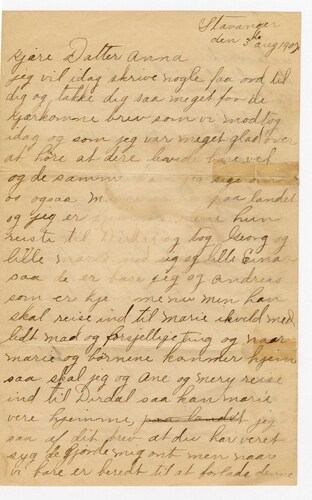 Stavanger
den 3die aug 1907
Kjære Datter Anna
jeg vil idag skrive nogle faa ord til
dig og takke dig saa meget for de
kjærkomne brev som vi modtog
idag og som jeg var meget glad over
at høre at dere lever bare vel
og de samme kan jeg sige om
os ogsaa paa landet
og jeg er hun
reiste til og tog Georg og
lille med sig og lille Einar
saa de er bare jeg og andreas
som er hje menu men han
skal reise ind til marie ikveld med
lidt mad og forsjellige ting og naar
marie og børnene kommer hjem
saa skal jeg og Ane og mery reise
ind til Dirdal saa kan marie
vere hjemme, paa landet jeg
saa af dit brev at du har veret
syg de gjorde mig ont men naar
vi bare er beredt til at forlade denne